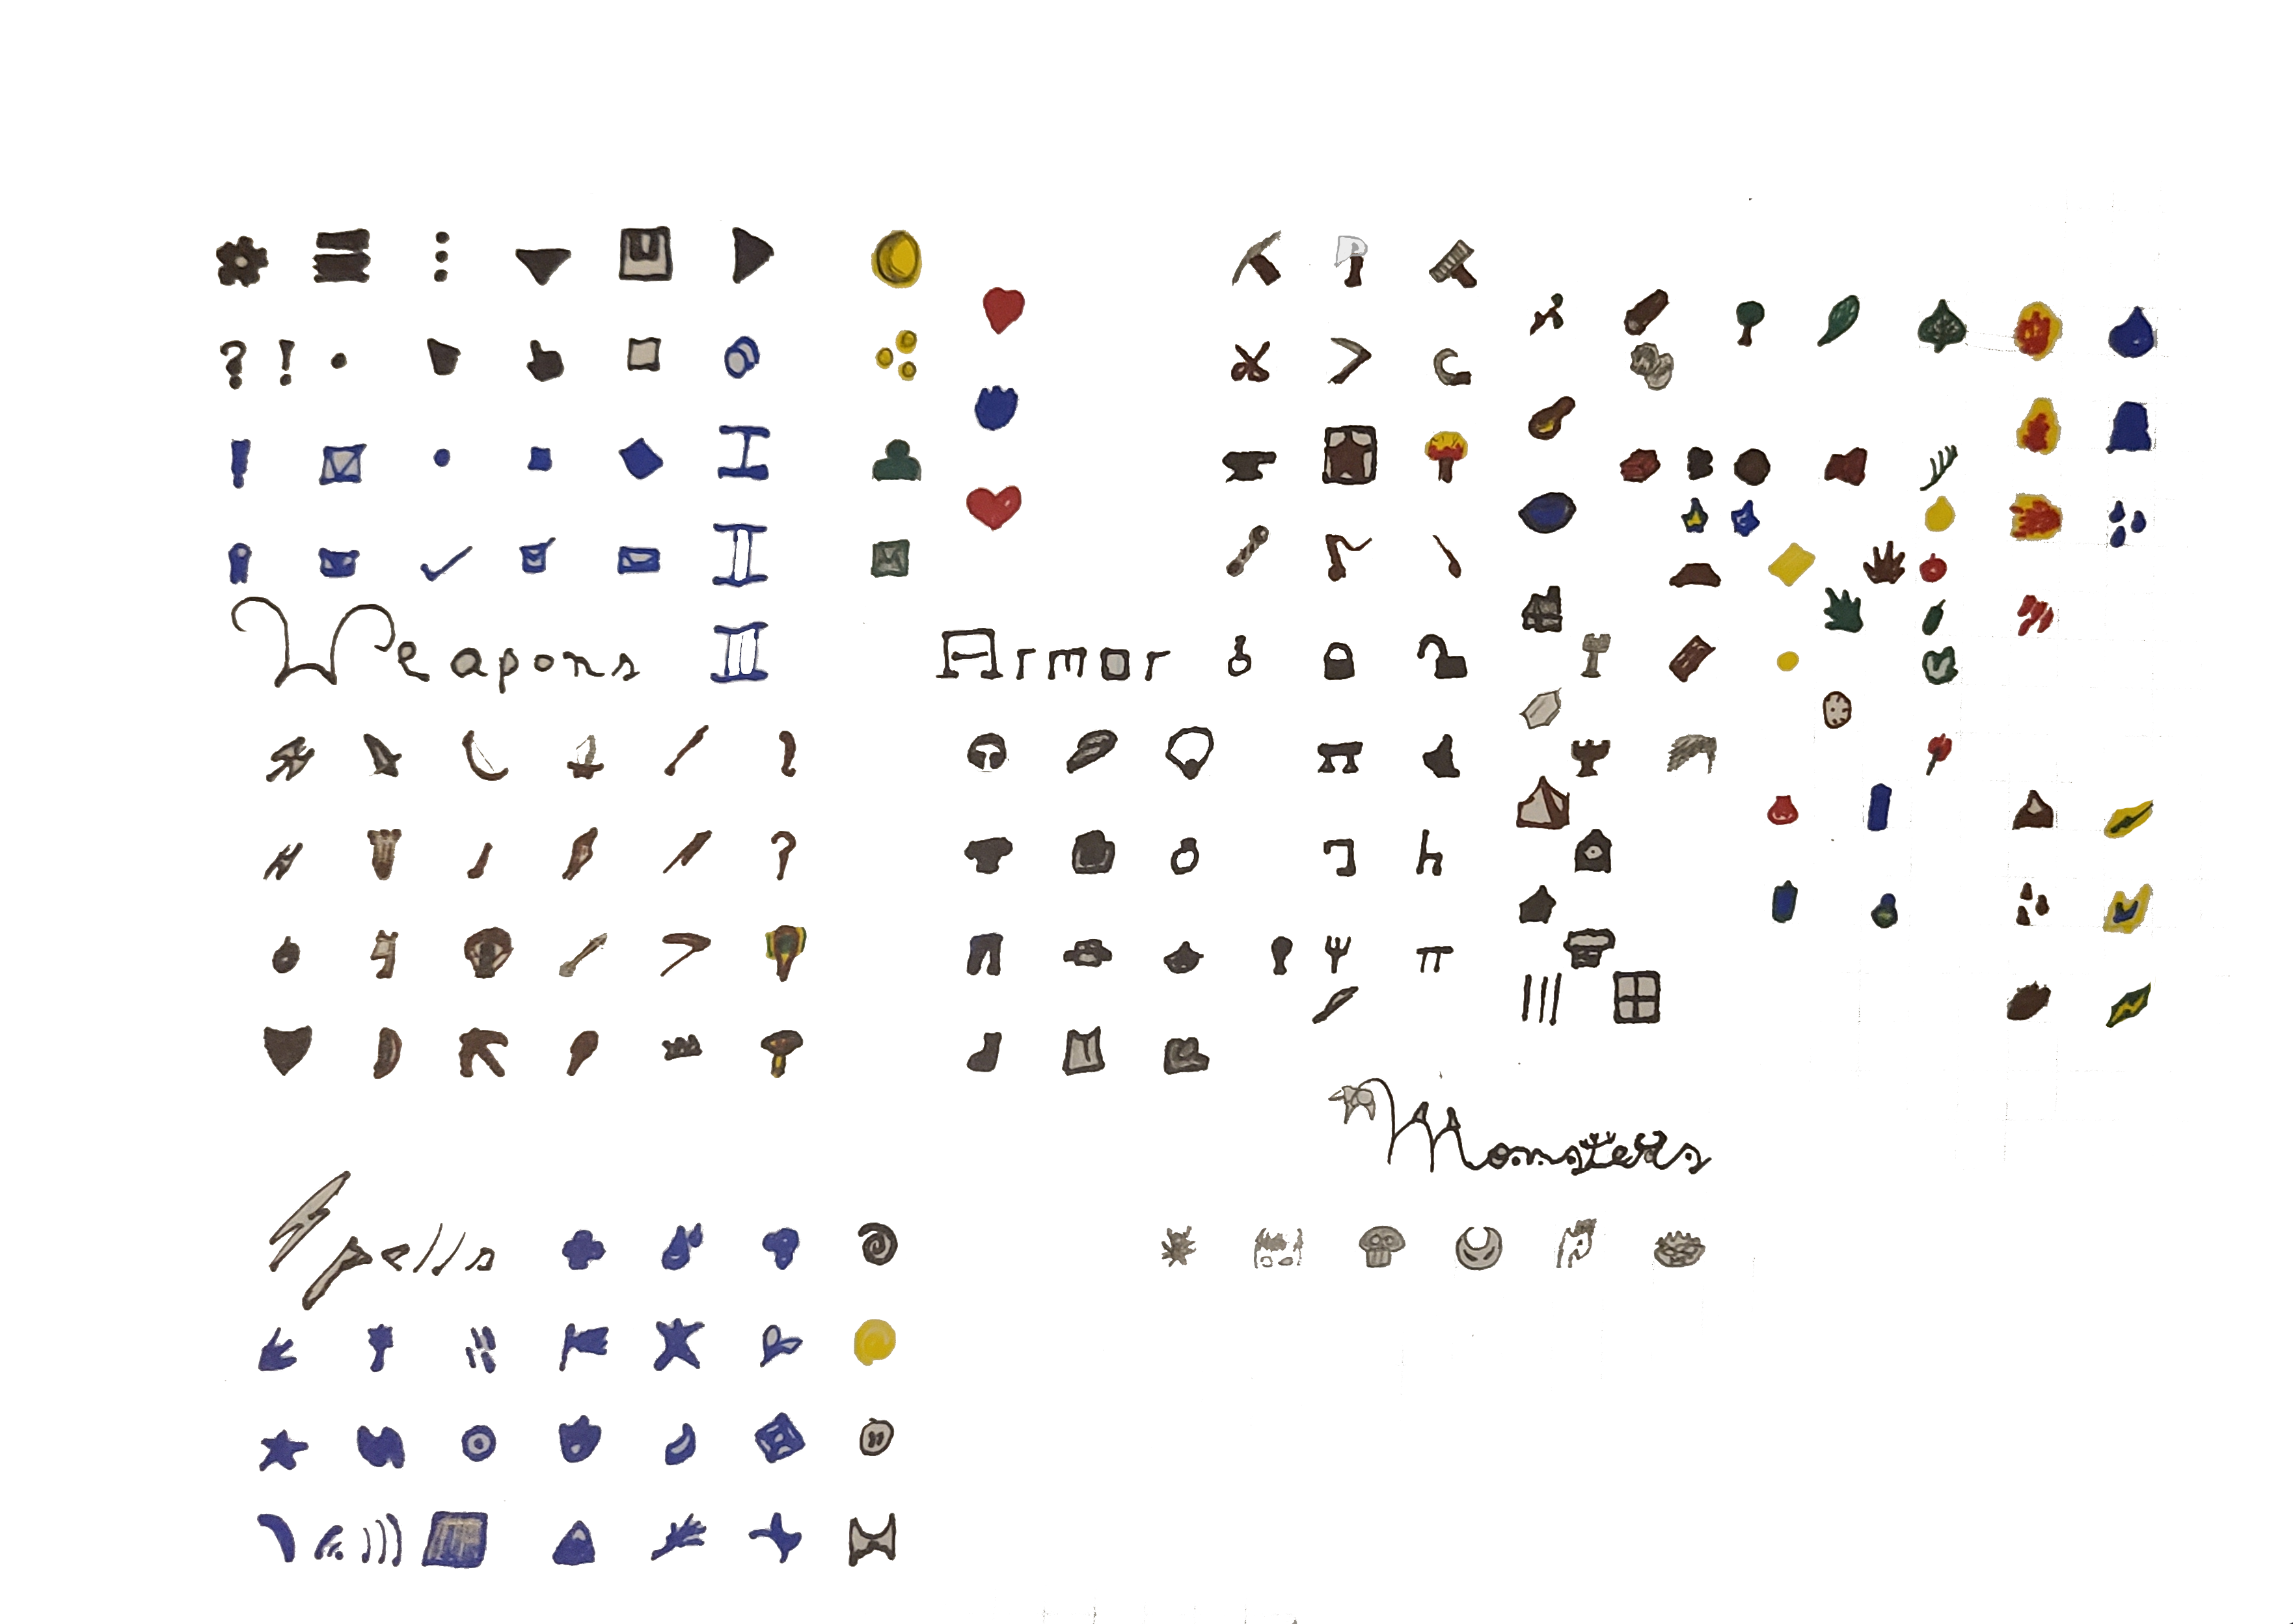 ? !
Weapons
Armor
Monsters
Spells